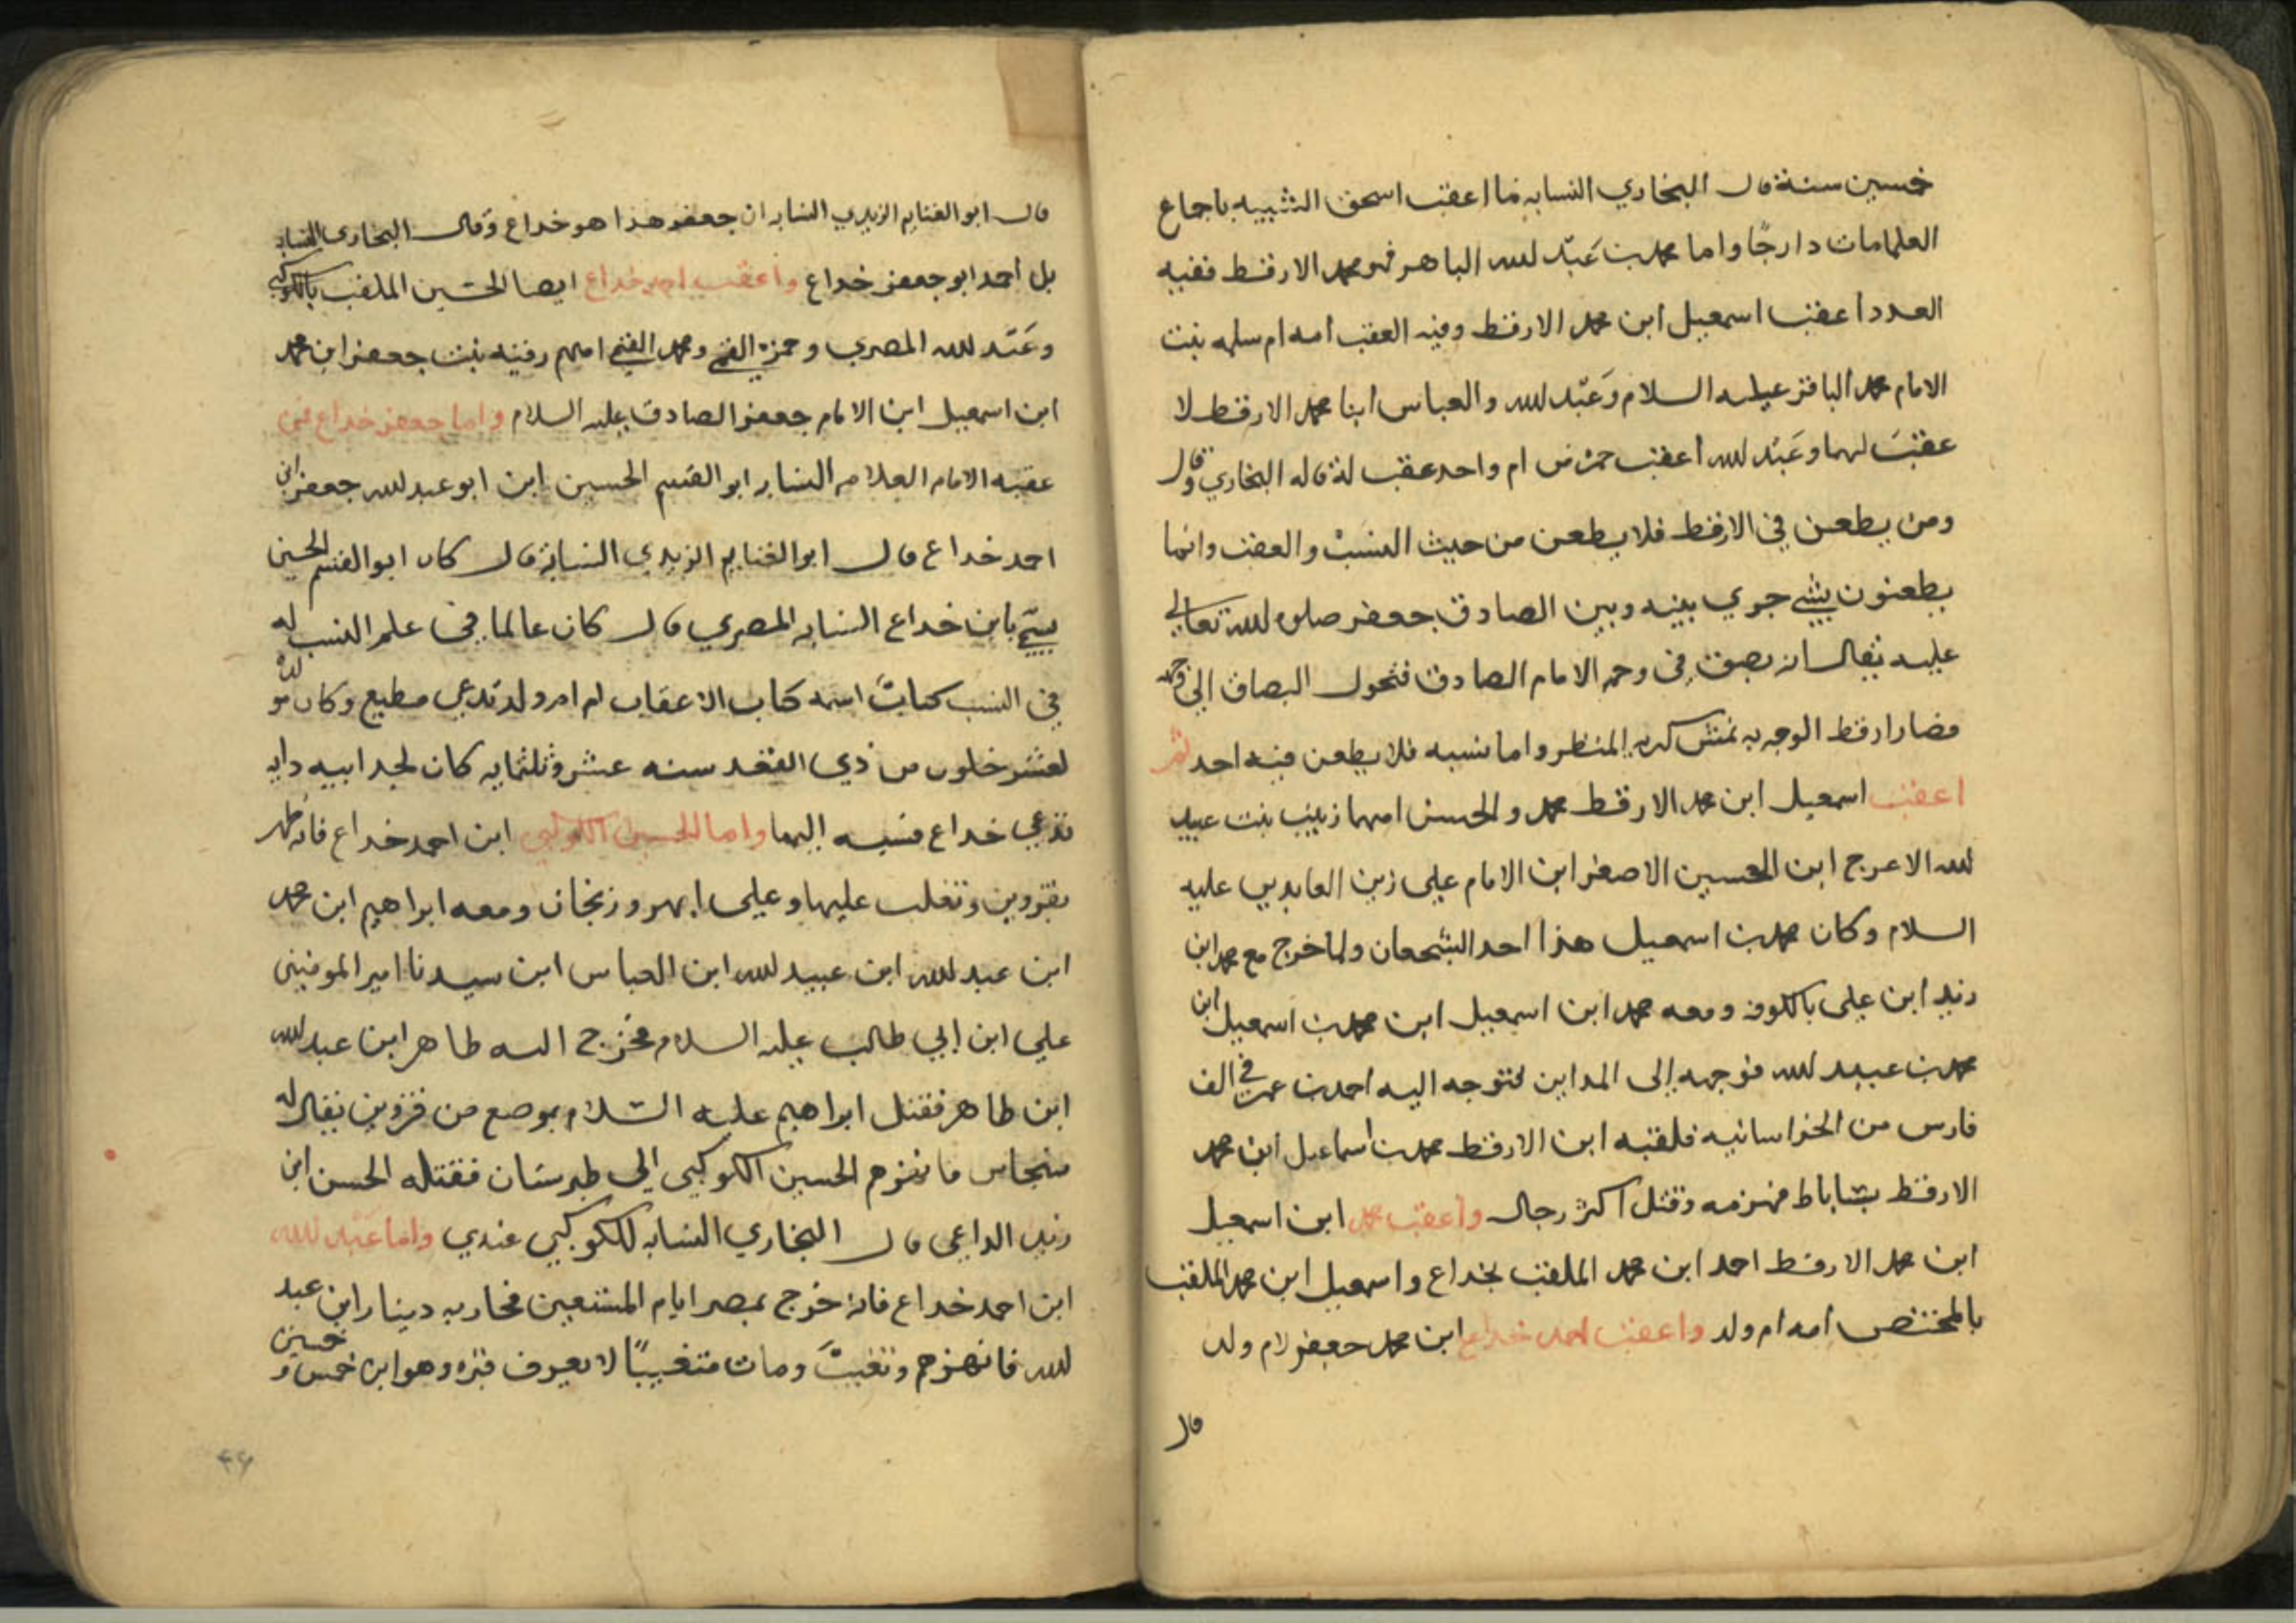 خمسين سنة قال البخاري النسابه فما اعقب اسحق الشبيه باجماع
العلما مات دارجًا واما محمد بن عَبْد الله الباهر فهو محمد الارقط ففيه
العدد اعقب اسمعيل ابن محمد الارقط وفيه العقب امه ام سلمه بنت
الامام محمد الباقر عليه السلام وَعَبْد الله والعباس ابنا محمد الارقط لا
عقبَ لهما وعَبْد الله اعقب من ام واحد عقب له قاله البخاري وقال
ومن يطعن في الارقط فلا يطعن من حيث النسبْ والعقب وانما
يطعنون بشي جري بينه وبين الصادق جعفر صلوه الله تعالي
عليه يقال انه بصق في وجه الامام الصادق فتحول البصاق الي وجهه
فصار ارقط الوجه به نمش كريه المنظر واما نسبه فلا يطعن فيه احد ثم
اعقب اسمعيل ابن محمد الارقط محمد والحسن امهما زينب بنت عبيد
الله الاعرج ابن الحسين الاصغر ابن الامام علي زين العابدين عليه
السلام وكان محمد بن اسمعيل هذا احد الشجعان ولما خرج مع محمد ابن
زيد ابن علي بالكوفه ومعه محمد ابن اسمعيل ابن محمد بن اسمعيل ابن
محمد بن عبيد الله فوجهه إلى المداين فتوجه اليه احمد بن عمر في الف
فارس من الخراسانيه فلقيه ابن الارقط محمد بن اسماعيل ابن محمد
الارقط بساباط فهزمه وقتل اكثر رجاله واعقب محمد ابن اسمعيل
ابن محمد الارقط احمد ابن محمد الملقب بخداع واسمعيل ابن محمد الملقب
بالمختص امه ام ولد واعقب احمد خداع ابن محمد جعفر لام ولد
قال
قال ابو الغنايم الزيدي النسابه ان جعفر هذا هو خداع وقال البخاري النسابه
بل احمد ابو جعفر خداع واعقب احمد خداع ايضا الحسين الملقب بالكوكبي
وعَبْد الله المصري وحمزه القمي ومحمد القمي امهم رقيه بنت جعفر ابن محمد
ابن اسمعيل ابن الامام جعفر الصادق عليه السلام واما جعفر خداع فمن
عقبه الامام العلامه النسابه ابو القسم الحسين ابن ابو عبد الله جعفر ابن
احمد خداع قال ابو الغنايم الزيدي النسابة قال كان ابو القسم الحسين
يسمي بابن خداع النسابه المصري قال كان عالما في علم النسب له
في النسب كتابٌ اسمه كتاب الاعقاب لم ام ولد تدعي مطيع وكان مولده
لعشر خلون من ذي القعد سنه عشر وثلثمايه كان لجد ابيه دايه
تدعي خداع فنسبه اليها واما الحسين الكوكبي ابن احمد خداع فانه ظهر
بقزوين وتغلب عليها وعلى ابهر وزنجان ومعه ابراهيم ابن محمد
ابن عبد الله ابن عبيد الله ابن العباس ابن سيدنا امير المومنين
علي ابن ابي طالب عليه السلام فخرج اليه طاهر ابن عبد الله
ابن طاهر فقتل ابراهيم عليه السّلام بموضع من قزوين يقال له
فانهزم الحسين الكوكبي الي طبرستان فقتله الحسن ابن
زيد الداعي قال البخاري النسابه للكوكبي عندي واما عَبْد الله
ابن احمد خداع فانه خرج بمصر ايام المستعين فحاربه دينار ابن عبد
الله فانهزم وتغيبَ ومات متغيبًا لا يعرف قبره وهو ابن خمس وخمسين
٤٦